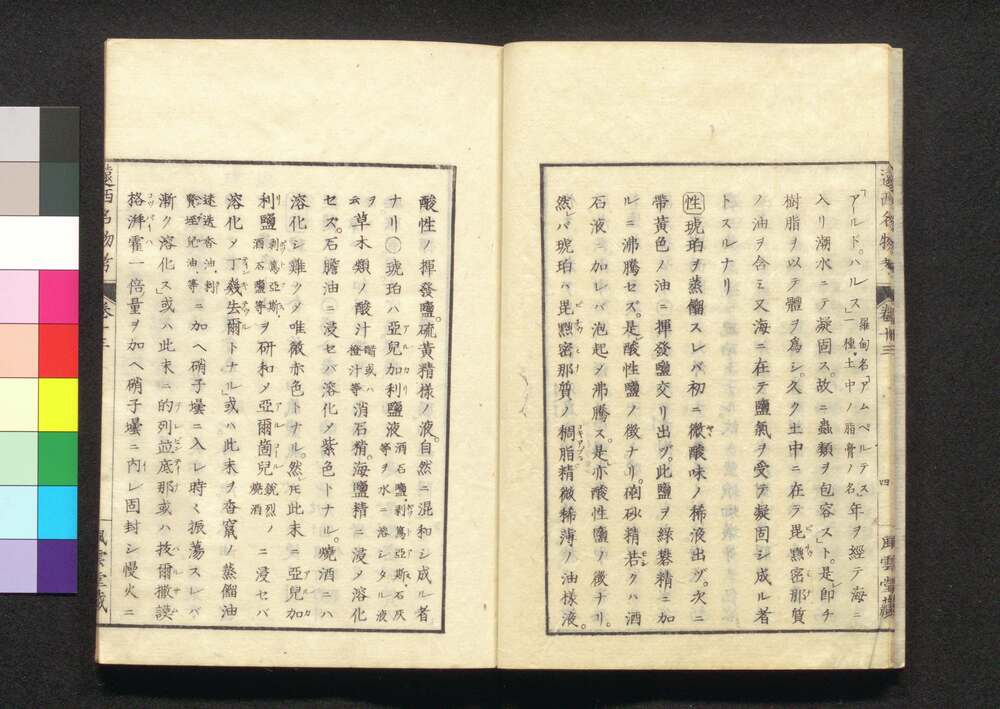 遠西名物考 卷廿三 四 風雲堂藏
「アルドハルス」羅甸名「アムベルテス」年ヲ經テ海ニ
一種土中ノ脂膏ノ名
入リ潮水ニテ凝固ス。故ニ蟲類ヲ包容スト。是レ卽チ
樹脂ヲ以テ體ヲ爲シ。久ク土中ニ在テ毘㷔密那質
ノ油ヲ含ミ又海ニ在テ鹽氣ヲ受テ凝固シ成ル者
トスルナリ
性 琥珀ヲ蒸餾スレバ初ニ微酸味ノ稀液出ヅ。次ニ
帶黃色ノ油ニ揮發鹽交リ出ヅ。此鹽ヲ綠礬精ニ加
ルニ沸騰セズ。是レ酸性鹽ノ徵ナリ。硇砂精若クハ酒
石液ニ加レバ泡起メ沸騰ス。是レ亦酸性鹽ノ徵ナリ。
然レバ琥珀ハ毘㷔密那質ノ稠脂精微稀薄ノ油樣液。
酸性ノ揮發鹽。硫黃精樣ノ液。自然ニ混和シ成ル者
ナリ 琥珀ハ亞兒加利鹽液 酒石鹽。剥篤亞斯。石灰等ヲ水ニ溶シタル液
ヲ云 草木類ノ酸汁 醋或ハ橙汁等 消石精。海鹽精ニ浸メ溶化
セズ。石膽油ニ浸セバ溶化メ紫色トナル。燒酒ニハ
溶化シ難クメ唯微赤色トナル。然レ𪜈此末ニ亞兒加
利鹽 剥篤亞斯。酒石鹽等 ヲ研和メ亞爾箇兒 銳烈ノ燒酒 ニ浸セバ
溶化メ丁幾去爾トナル」或ハ此末ヲ杏窠ノ蒸餾油
ニ加ヘ硝子壜ニ入レ時々振蕩スレバ
漸ク溶化ス」或ハ此末ニ的列並底那或ハ拔爾撒謨
格湃霍一倍量ヲ加ヘ硝子壜ニ內レ固封シ慢火ニ
遠西名物考 卷廿三 風雲堂藏